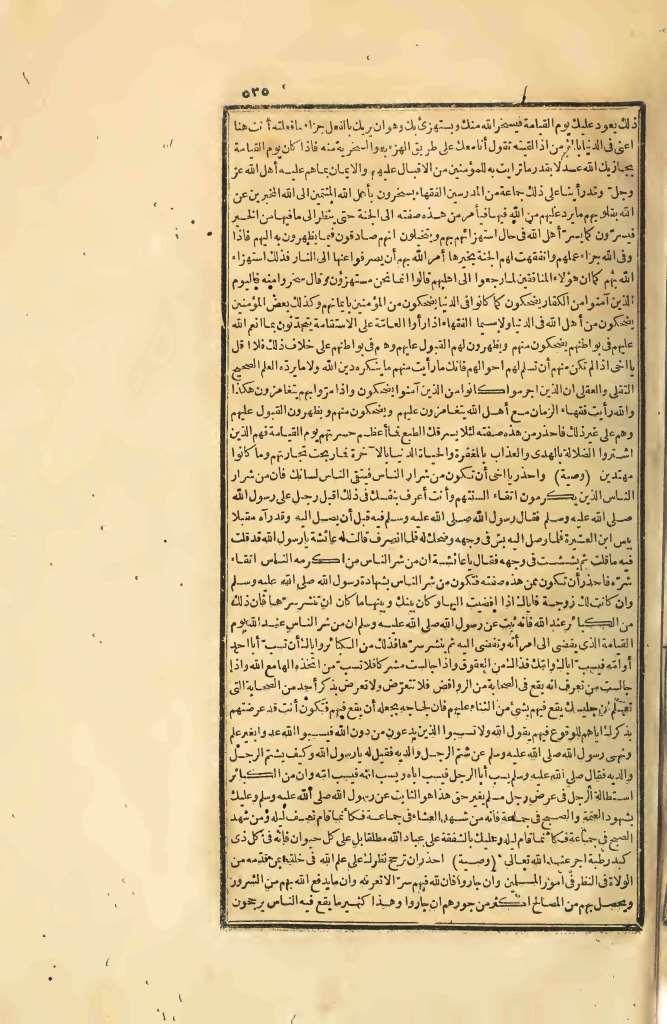 ٥٣٥
ذلك يعود عليك يوم القيامة فيسخر الله منك ويستهزئ بك وهو ان يريك بالفعل جزاء ما فعلته أنت هنا
اعنى فى الدنيا بالمؤمن اذ القيته تقول أنا معك على طريق الهزء به والسخرية منه فاذا كان يوم القيامة
يجازيك الله عدلا بقدر ما تراءيت به للمؤمنين من الاقبال عليهم والايمان بما هم عليه أهل الله عز
وجل وقد رأينا على ذلك جماعة من المدرسين الفقهاء يسخرون بأهل الله المنتمين الى الله المخبرين عن
الله بقلوبهم ما يرد عليهم من الله فيها فيأمر من هذه صفته الى الجنة حتى ينظر الى ما فيها من الخير
فيسرّون كما يسرّ أهل الله فى حال استهزائهم بهم ويتخيلون انهم صادقون فيما يظهرون به اليهم فاذا
وفى الله جزاء عملهم وانفقهت لهم الجنة بخيرها أمر الله بهم أن يصرفوا عنها الى النار فذلك استهزاء
الله بهم كما ان هؤلاء المنافقين لما رجعوا الى اهليهم قالوا انما نحن مستهزؤن وقال سخروا منه فاليوم
الذين آمنوا من الكفار يضحكون كما كانوا فى الدنيا يضحكون من المؤمنين بايمانهم وكذلك بعض المؤمنين
يضحكون من أهل الله فى الدنيا ولا سيما الفقهاء اذا رأوا العامّة على الاستقامة يتحدّثون بما أنعم الله
عليهم فى بواطنهم يضحكون منهم ويظهرون لهم القبول عليهم وهم فى بواطنهم على خلاف ذلك فلا أقل
يا اخى اذا لم تكن منهم أن تسلم لهم احوالهم فانك ما رأيت منهم ما ينكره دين الله ولا ما يردّه العلم الصحيح
النقلى والعقلى ان الذين اجرموا كانوا من الذين آمنوا يضحكون واذا مرّوا بهم يتغامزون هكذا
والله رأيت فقهاء الزمان مع أهل الله يتغامزون عليهم ويضحكون منهم ويظهرون القبول عليهم
وهم على غير ذلك فاحذر من هذه صفته لئلا يسرقك الطبع فما أعظم حسرتهم يوم القيامة فهم الذين
اشتروا الضلالة بالهدى والعذاب بالمغفرة والحياة الدنيا بالآخرة فما ربحت تجارتهم وما كانوا
مهتدين (وصية) واحذر يا اخى أن تكون من شرار الناس فيتقى الناس لسانك فان من شرار
الناس الذين يكرمون اتقاء السنتهم وأنت أعرف بنفسك فى ذلك اقبل رجل على رسول الله
صلى الله عليه وسلم فقال رسول الله صلى الله عليه وسلم فيه قبل أن يصل اليه وقد رآه مقبلا
بئس ابن العشيرة فلما وصل اليه بش فى وجهه وضحك له فلما انصرف قالت له عائشة يا رسول الله قد قلت
فيه ما قلت ثم بششت فى وجهه فقال يا عائشة ان من شر الناس من اكرمه الناس اتقاء
شرّه فاحذر أن تكون ممن هذه صفته فتكون من شر الناس بشهادة رسول الله صلى الله عليه وسلم
وان كانت لك زوجة فاياك اذا افضيت اليها وكان بينك وبينها ما كان ان تنشر سرّها فان ذلك
من الكبائر عند الله فانه ثبت عن رسول الله صلى الله عليه وسلم ان من شر الناس عند الله يوم
القيامة الذى يفضى الى امرأته وتفضى اليه ثم ينشر سرّها فذلك من الكبائر واياك أن تسب أبا احد
أو امّه فيسب اباك وامّك فذلك من العقوق واذا جالست مشركا فلا تسبّ من اتخذه الها مع الله واذا
جالست من تعرف انه يقع فى الصحابة من الروافض فلا تتعرّض ولا تعرض بذكر أحد من الصحابة التى
تعلم ان جليسك يقع فيهم بشئ من الثناء عليهم فان لجاجه يجعله أن يقع فيهم فتكون أنت قد عرضتهم
بذكرك اياهم للوقوع فيهم يقول الله ولا تسبوا الذين يدعون من دون الله فيسبوا الله عدوا بغير علم
ونهى رسول الله صلى الله عليه وسلم عن شتم الرجل والديه فقيل له يا رسول الله وكيف يشتم الرجل
والديه فقال صلى الله عليه وسلم يسب أبا الرجل فيسب اباه ويسب امّه فيسب امّه وان من الكبائر
استطالة الرجل فى عرض رجل مسلم بغير حق هذا هو الثابت عن رسول الله صلى الله عليه وسلم وعليك
بشهود العتمة والصبح فى جماعة فانه من شهد العشاء فى جماعة فكأنما قام نصف ليلة ومن شهد
الصبح فى جماعة فكأنما قام ليلة وعليك بالشفقة على عباد الله مطلقا بل على كل حيوان فانه فى كل ذى
كبد رطبة اجر عند الله تعالى (وصية) احذر ان ترجح نظرك على علم الله فى خلقه بمن قدّمه من
الولاة فى النظر فى أمور المسلمين وان جاروا فان لله فيهم سرّا لا تعرفه وان ما يدفع الله بهم من الشرور
ويحصل بهم من المصالح اكثر من جورهم ان جاروا وهذا كثير ما يقع فيه الناس يرجحون